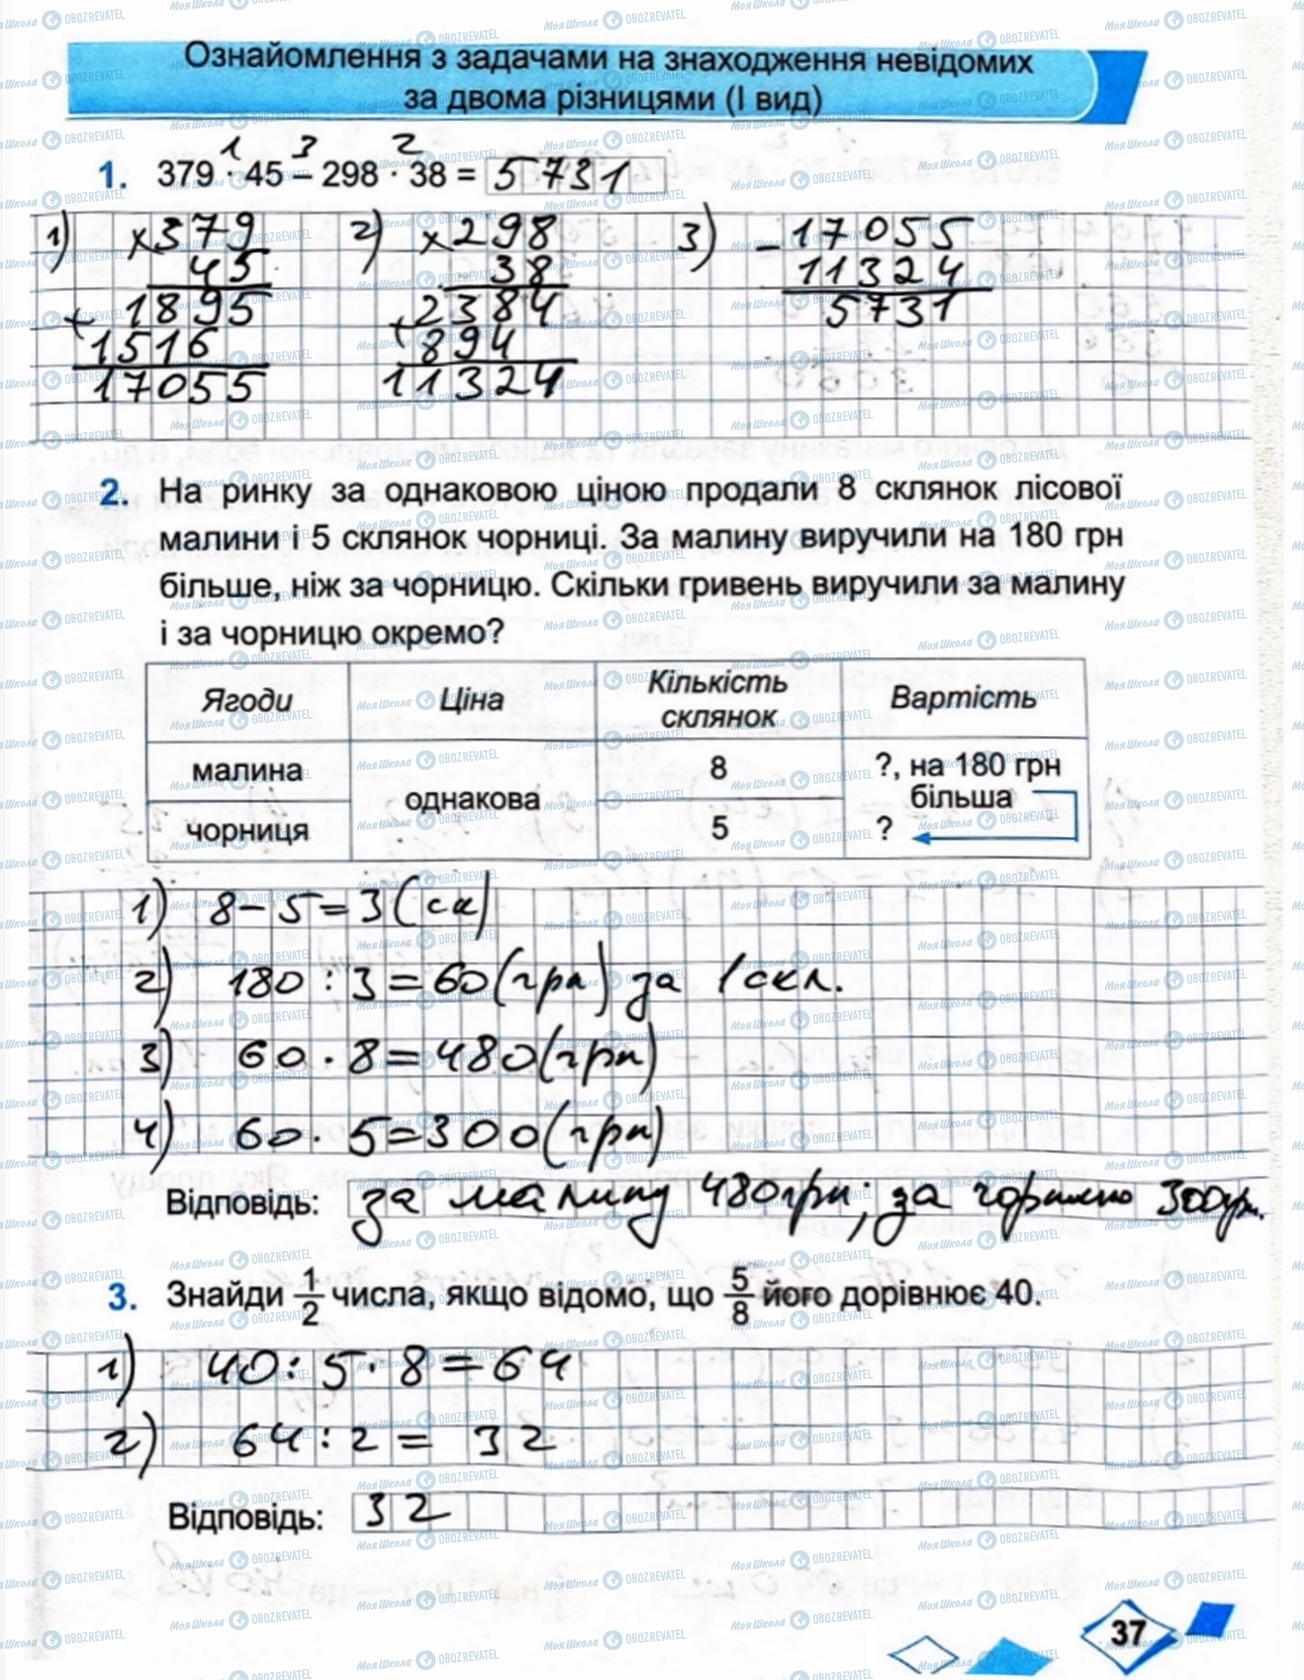 Ознайомлення з задачами на знаходження невідомих
за двома різницями (І вид)
1 3 2
1. 379 · 45 – 298 · 38 = 5731
1) ×379 2) ×298 3) –17055
45 38 11324
+1895 +2384 5731
1516 894
17055 11324
2. На ринку за однаковою ціною продали 8 склянок лісової
малини і 5 склянок чорниці. За малину виручили на 180 грн
більше, ніж за чорницю. Скільки гривень виручили за малину
і за чорницю окремо?
Ягоди Ціна Кількість склянок Вартість
малина однакова 8 ?, на 180 грн більша
чорниця 5 ?
1) 8 – 5 = 3 (ск)
2) 180 : 3 = 60 (грн) за 1 скл.
3) 60 · 8 = 480 (грн)
4) 60 · 5 = 300 (грн)
Відповідь: за малину 480 грн; за чорницю 300 грн.
3. Знайди 1/2 числа, якщо відомо, що 5/8 його дорівнює 40.
1) 40 : 5 · 8 = 64
2) 64 : 2 = 32
Відповідь: 32
37
МояШкола OBOZREVATEL